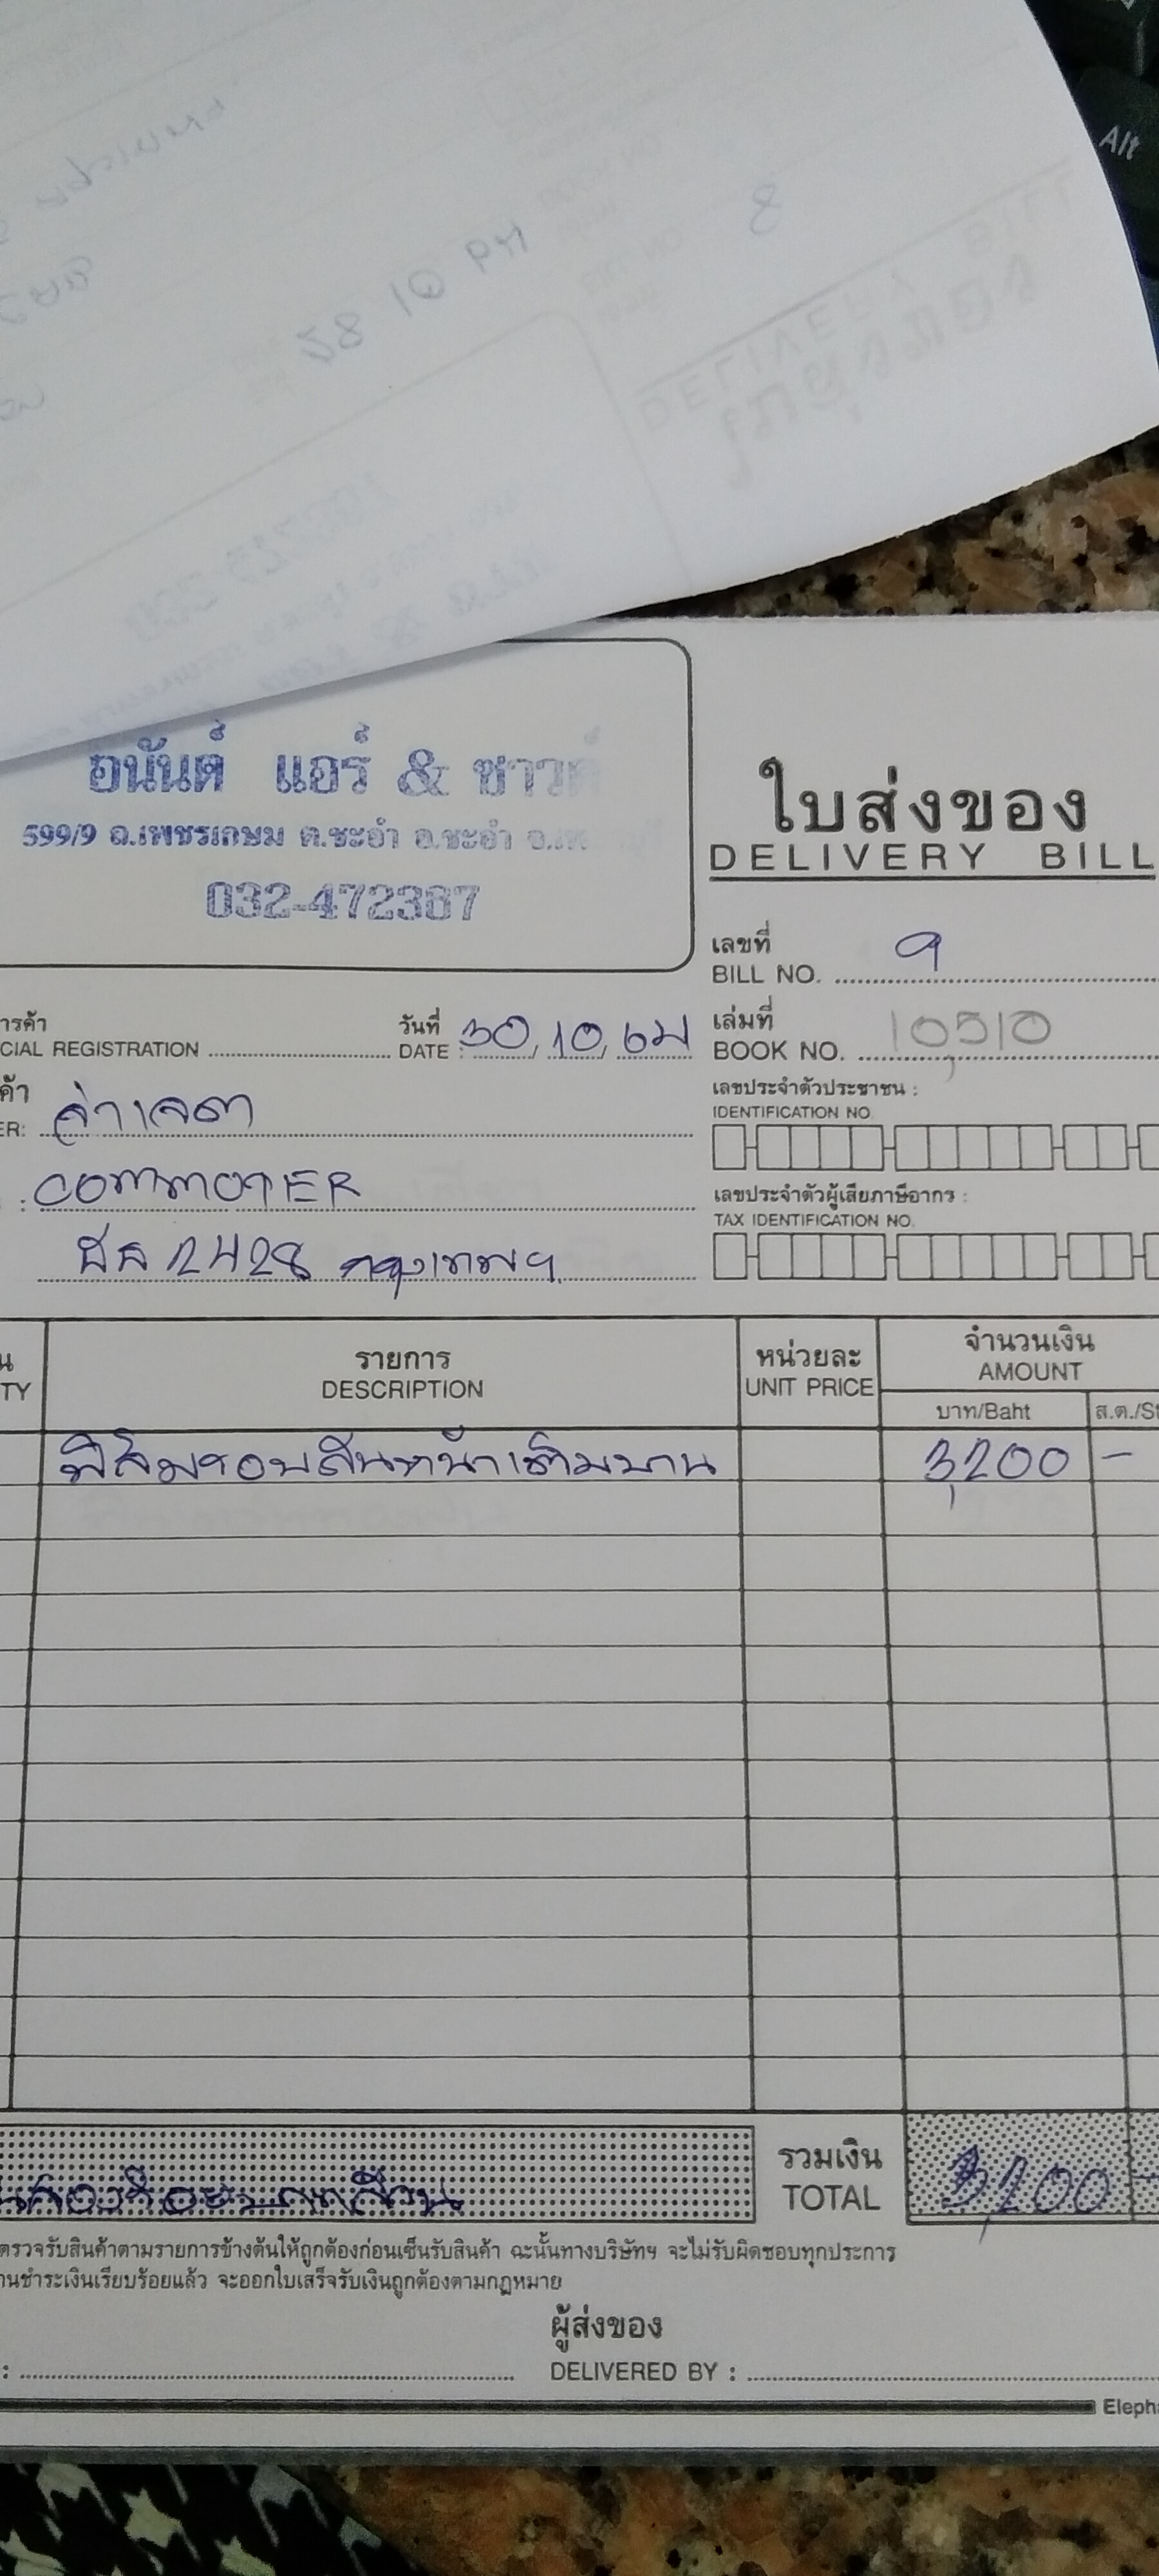 Alt
28 10 64
8
อนันต์ แอร์ & ซาวด์
599/9 ถ.เพชรเกษม ต.ชะอำ อ.ชะอำ
032-472367
ใบส่งของ
DELIVERY BILL
เลขที่ 9
BILL NO.
วันที่ 30, 10, 64
DATE :
เล่มที่
BOOK NO. 10,510
CIAL REGISTRATION
เลขประจำตัวประชาชน :
IDENTIFICATION NO.
COMMOTER
เลขประจำตัวผู้เสียภาษีอากร :
TAX IDENTIFICATION NO.
2428 กรุงเทพฯ
รายการ
DESCRIPTION
หน่วยละ
UNIT PRICE
จำนวนเงิน
AMOUNT
บาท/Baht
ส.ต./St
ฟิล์มรอบคันหน้าเต็มบาน 3,200 -
รวมเงิน
TOTAL
3,200 -
ตรวจรับสินค้าตามรายการข้างต้นให้ถูกต้องก่อนเซ็นรับสินค้า ฉะนั้นทางบริษัทฯ จะไม่รับผิดชอบทุกประการ
านชำระเงินเรียบร้อยแล้ว จะออกใบเสร็จรับเงินถูกต้องตามกฎหมาย
ผู้ส่งของ
DELIVERED BY :
Eleph